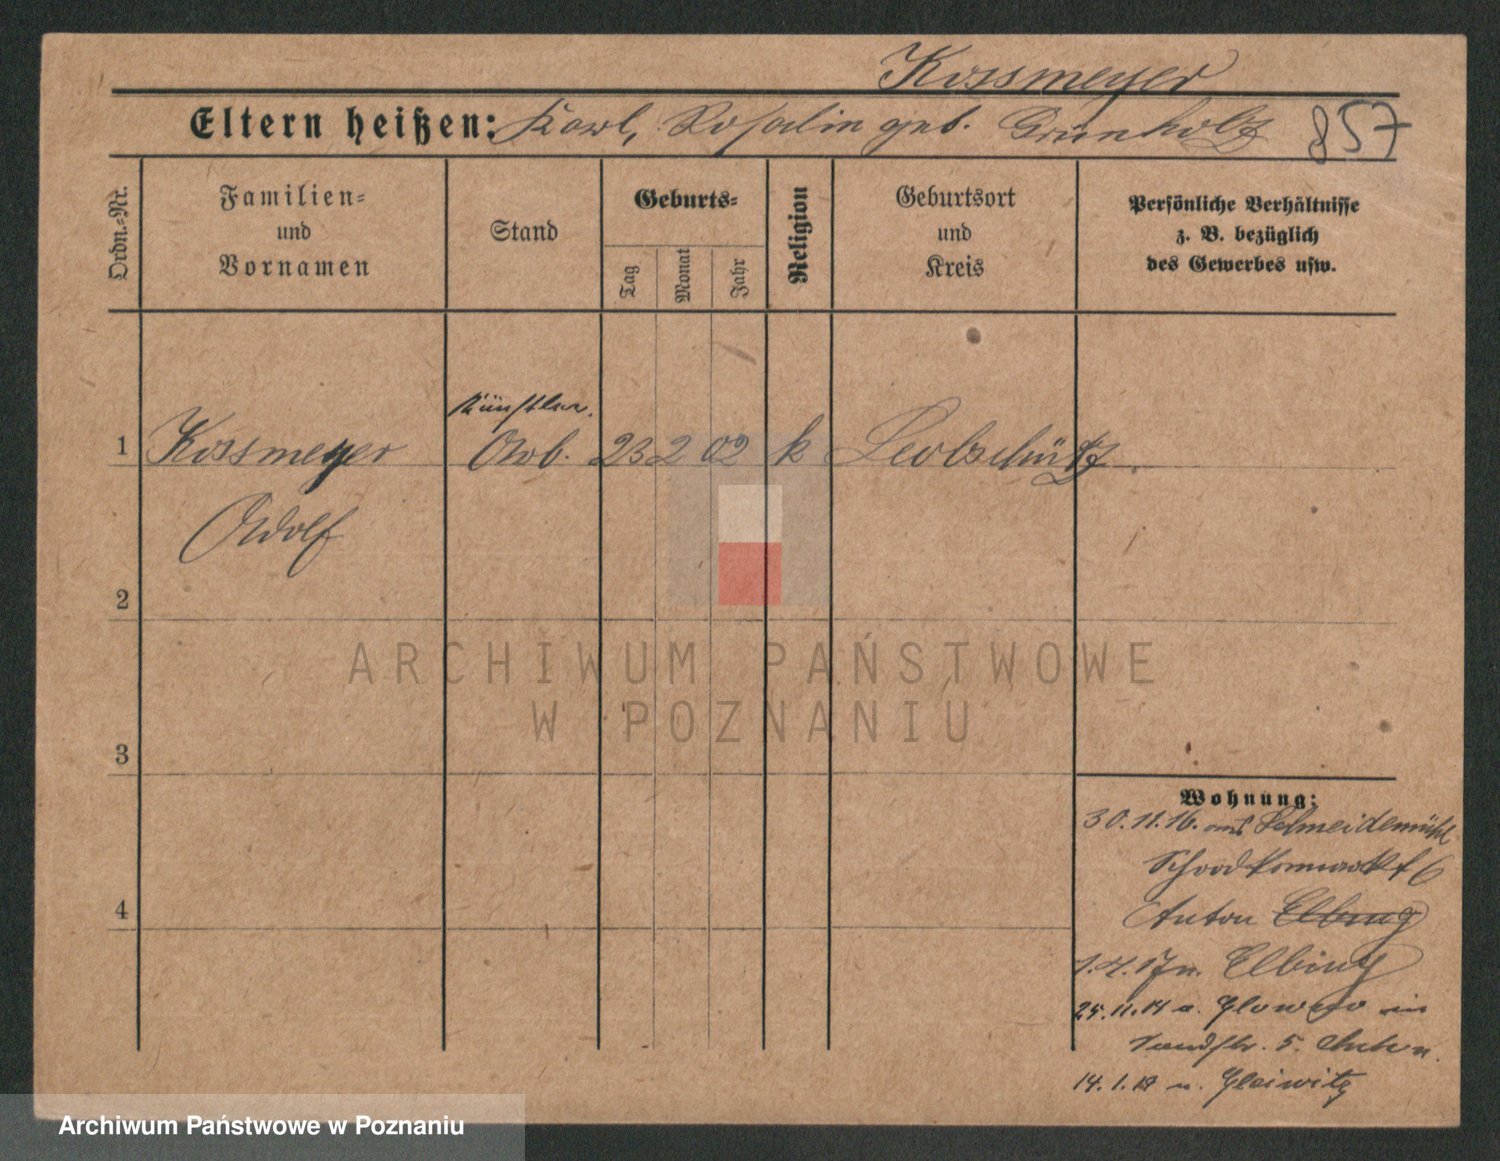 Kossmeyer
Eltern heißen: Karl, Rosalin geb. Grünholz 857
Ordn.-Nr.
Familien-
und
Vornamen
Stand
Geburts-
Tag
Monat
Jahr
Religion
Geburtsort
und
Kreis
Persönliche Verhältnisse
z. B. bezüglich
des Gewerbes usw.
Künstler.
1 Kossmeyer Arb. 23 2 02 k Leobschütz.
Adolf
2
3
4
Wohnung:
30.11.16. aus Schneidemühl
6
Anton Elbing
1.4.17 n. Elbing
25.11. in
5.
14.1.18 n. Gleiwitz
ARCHIWUM PAŃSTWOWE
W POZNANIU
Archiwum Państwowe w Poznaniu